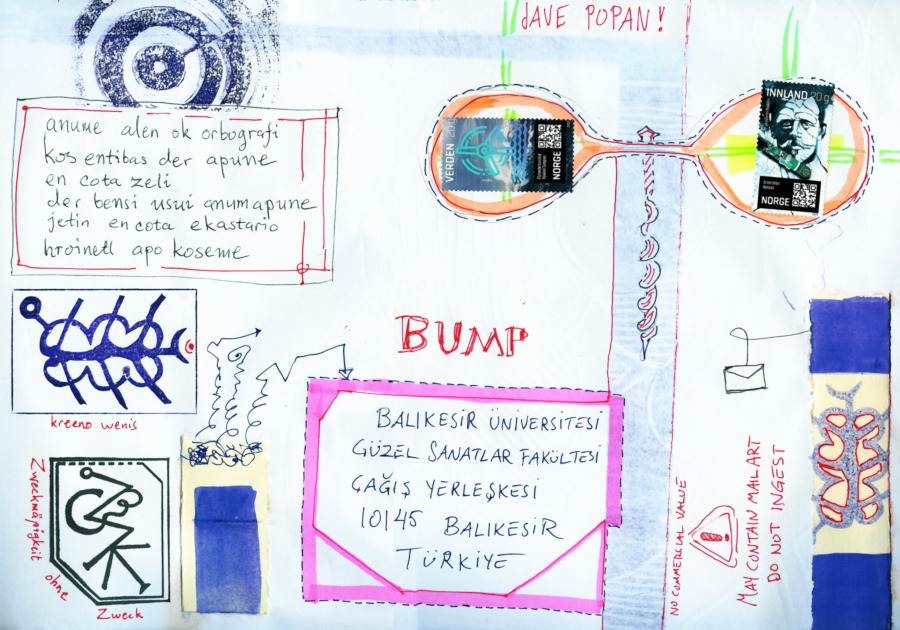 dAVE POPAN!
anume alen ok orbografi
kos entibas der apune
en cota zeli
der bensi usui anumapune
jetin en cota ekastario
hroinetl apo koseme
VERDEN 20g
NORGE
INNLAND 20g
NORGE
BUMP
BALIKESIR ÜNIVERSITESI
GÜZEL SANATLAR FAKÜLTESI
ÇAĞIŞ YERLEŞKESI
10145 BALIKESIR
TÜRKIYE
kreeno wenis
Zweckmäßigkeit
ohne
Zweck
NO COMMERCIAL VALUE
MAY CONTAIN MAIL ART
DO NOT INGEST